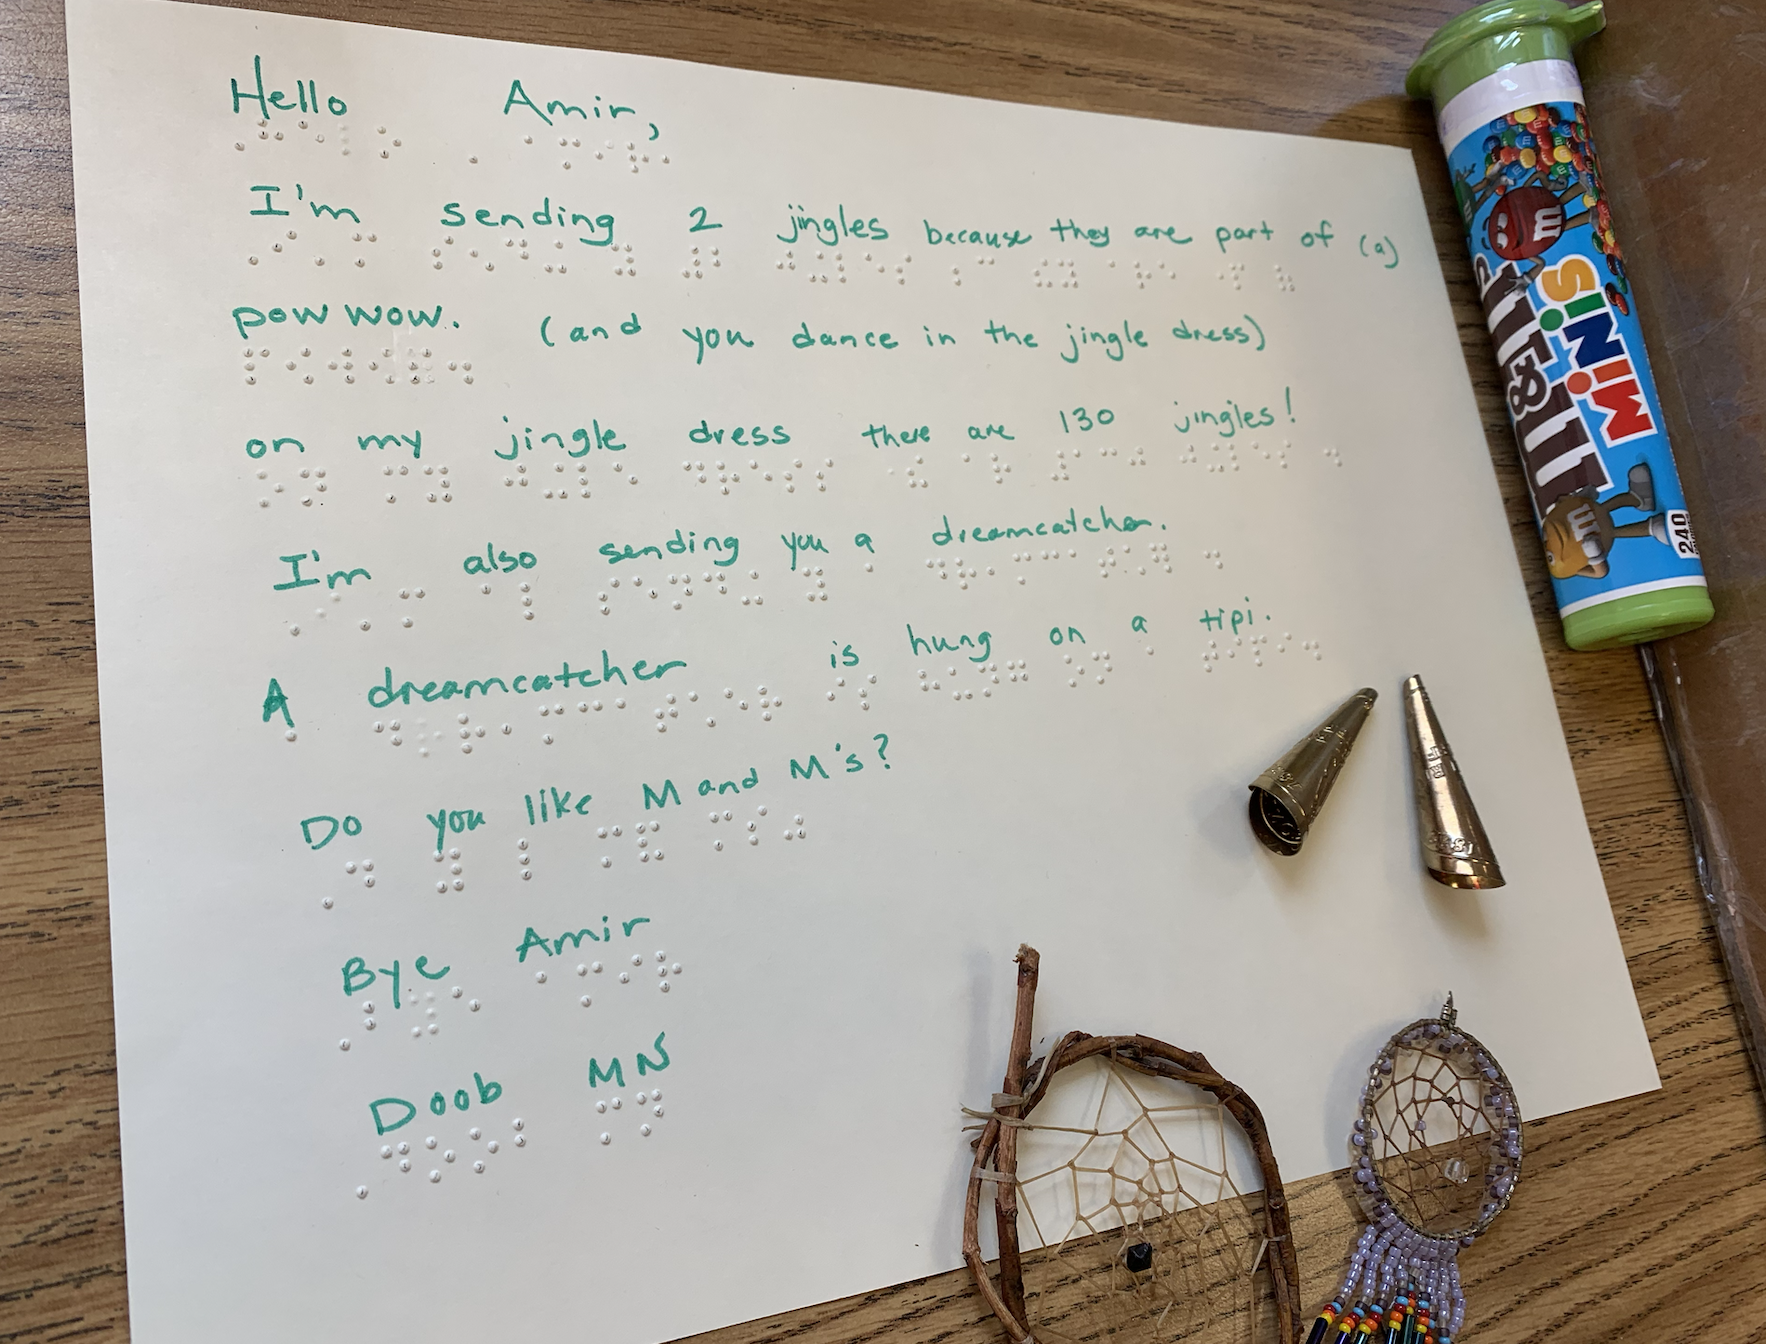 Hello Amir,
I'm sending 2 jingles because they are part of (a)
pow wow. (and you dance in the jingle dress)
on my jingle dress there are 130 jingles!
I'm also sending you a dreamcatcher.
A dreamcatcher is hung on a tipi.
Do you like M and M's?
Bye Amir
Doob MN
m&m's
MINIS
240